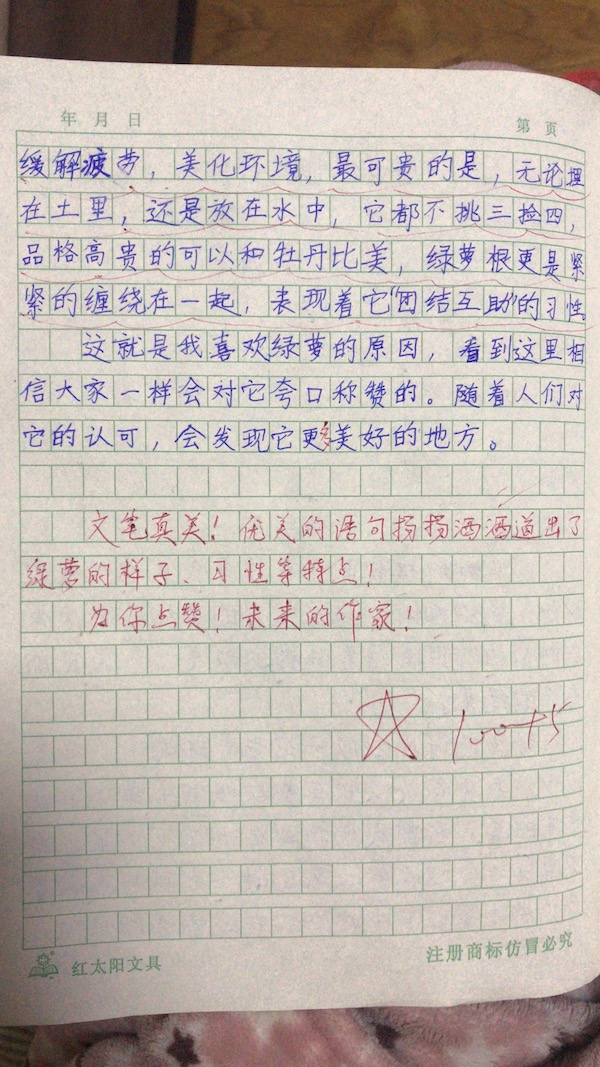 年 月 日
第 页
缓解疲劳，美化环境，最可贵的是，无论埋
在土里，还是放在水中，它都不挑三捡四，
品格高贵的可以和牡丹比美，绿萝根更是紧
紧的缠绕在一起，表现着它“团结互助”的习性
这就是我喜欢绿萝的原因，看到这里相
信大家一样会对它夸口称赞的。随着人们对
它的认可，会发现它更多美好的地方。
文笔真美！优美的语句扬扬洒洒道出了
绿萝的样子、习性等特点！
为你点赞！未来的作家！
100+5
红太阳文具
注册商标仿冒必究